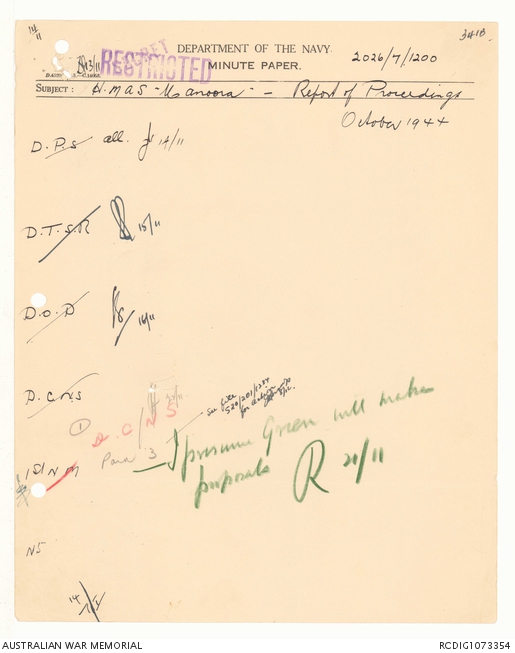 14/11
341B
DEPARTMENT OF THE NAVY
2026/7/1200
SECRET
RESTRICTED
13/11
MINUTE PAPER.
SUBJECT: H.M.A.S. "Manoora" - Report of Proceedings
October 1944
D.P.S all. 14/11
D.T.S.R 15/11
D.O.D 16/11
D.C.N.S
See file
520/201/1277
for action
① D.C.N.S
Para 3 I presume Green will make
proposals R 21/11
1st N M
NS
14/
AUSTRALIAN WAR MEMORIAL
RCDIG1073354